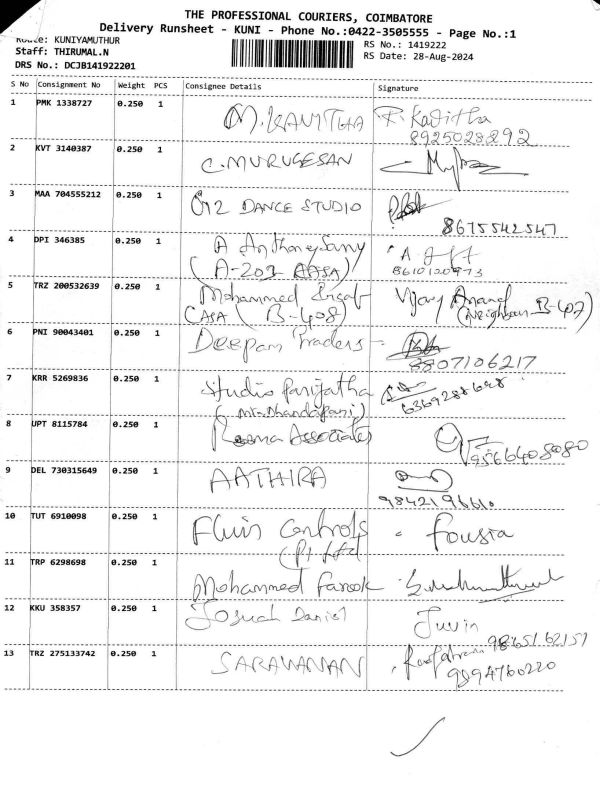 THE PROFESSIONAL COURIERS, COIMBATORE
Delivery Runsheet - KUNI - Phone No.:0422-3505555 - Page No.:1
Route: KUNIYAMUTHUR
RS No.: 1419222
Staff: THIRUMAL.N
RS Date: 28-Aug-2024
DRS No.: DCJB141922201
S No Consignment No Weight PCS Consignee Details Signature
1 PMK 1338727 0.250 1 M.KAVITHA
8925028292
2 KVT 3140387 0.250 1 C.MURUGESAN
3 MAA 704555212 0.250 1 DANCE STUDIO
8675542547
4 DPI 346385 0.250 1 A Anthonysamy
(A-203 CASA) 8610100973
5 TRZ 200532639 0.250 1 Mohammed Vijay Anand
CASA (B-408) (Neighbour B-407)
6 PNI 90043401 0.250 1 Deepam Traders
8807106217
7 KRR 5269836 0.250 1 Studio Parijatha
(Mr. Dhandapani) 6369288648
8 UPT 8115784 0.250 1 Reema Associates
9566408080
9 DEL 730315649 0.250 1 AATHIRA
9842196610
10 TUT 6910098 0.250 1 Controls Fousia
(P) Ltd
11 TRP 6298698 0.250 1 Mohammed Farook
12 KKU 358357 0.250 1 Josuah Daniel Juvin
9865162157
13 TRZ 275133742 0.250 1 SARAVANAN
9894760220